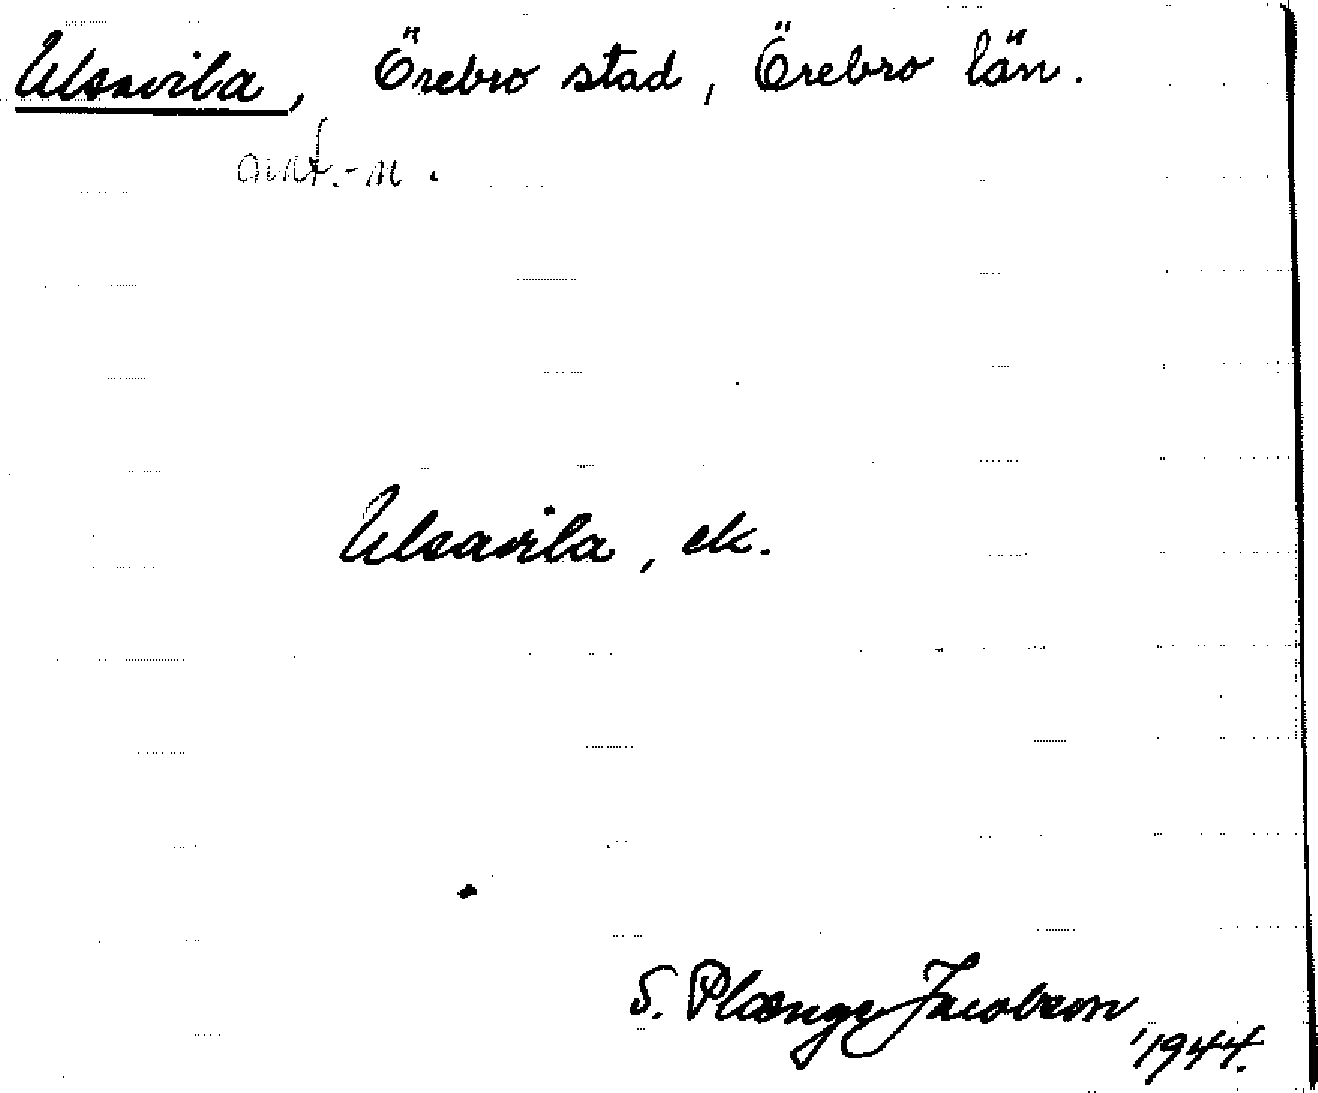 Ulsavila, Örebro stad, Örebro län.
Ulsavila, ek.
S. Plænge Jacobson
1944.